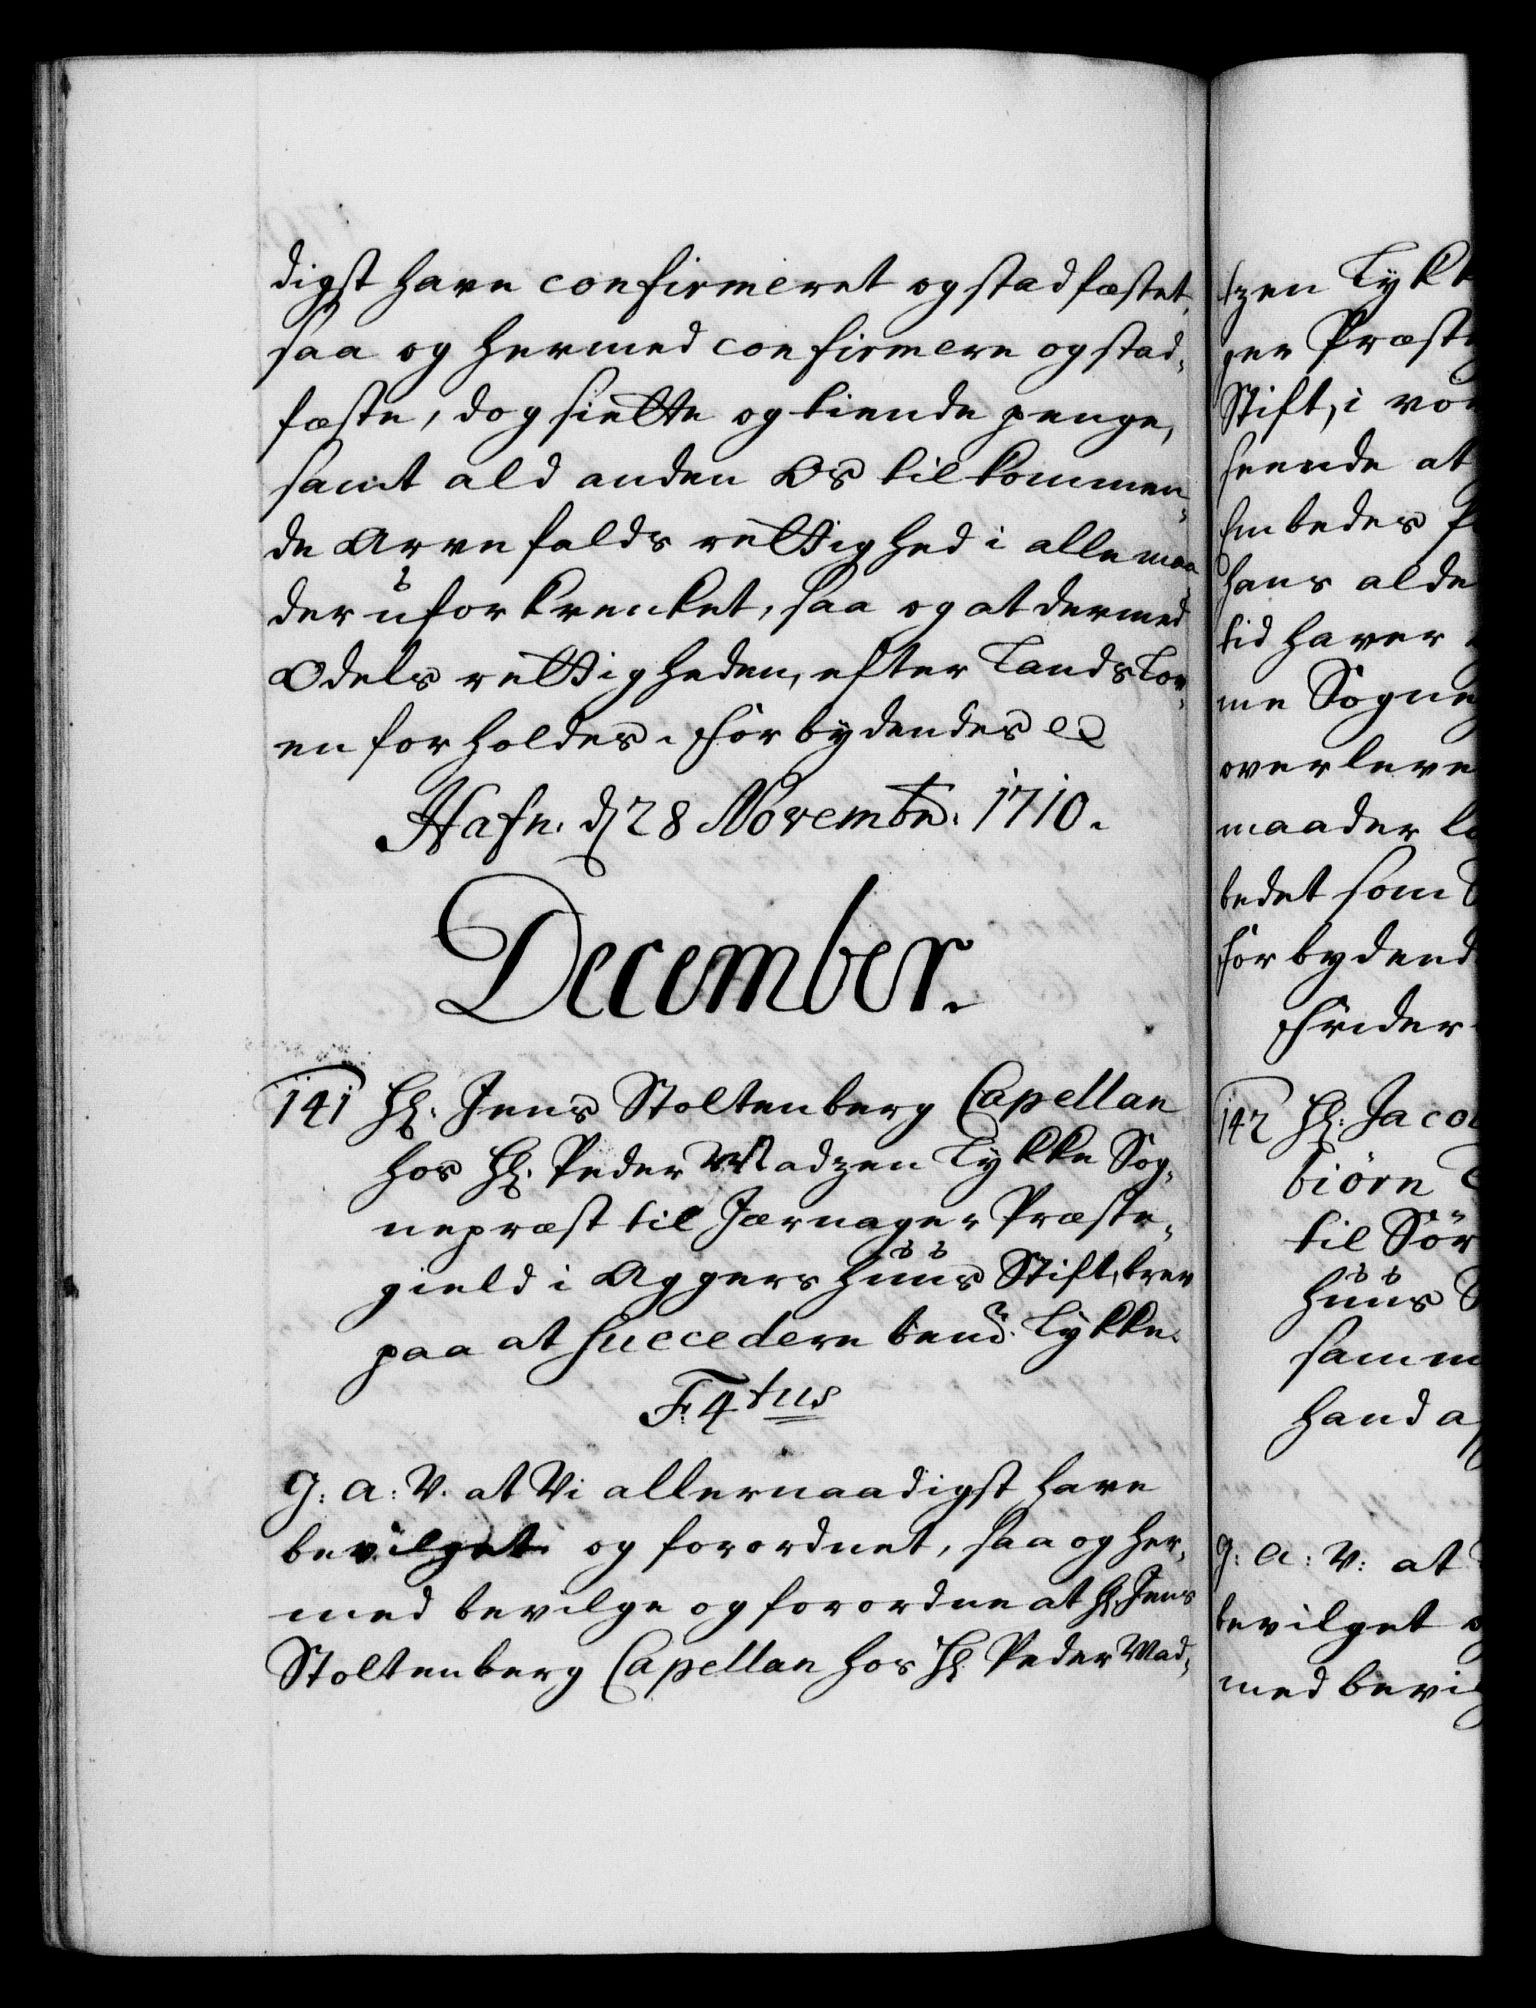 digst have confirmeret og stadfæstet,
saa og hermed confirmere og stad-
fæste, dog siette og tiende penge,
samt ald anden Os tilkommen-
de Arvefalds rettighed i alle maa-
der uforkrenket, saa og at dermed
Odels rettigheden, efter Lands Lov-
en forholdes. Forbydendes etc
Hafn. d 28 Novembr. 1710.
December.
141 Hr. Jens Stoltenberg Capellan
hos Hr. Peder Madzen Lykke Sog-
nepræst til Jævnager Præste-
gield i Aggershuus Stift, brev
paa at succedere bemd. Lykke.
F. 4tus
G: A: V. at Vi allernaadigst have
bevilget og forordnet, saa og her-
med bevilge og forordne at Hr. Jens
Stoltenberg Capellan hos Hr. Peder Mad-
tzen Lykk
ger Præste
Stift, i vor
seende at
Embedes
hans alde
tid haver
me Sogne
overleve
maader
bedet som
Forbydend
Frider
142 Hr: Jaco
biørn
til Sör
huus S
samm
hand a
G: A: V: at
bevilget o
med bevil